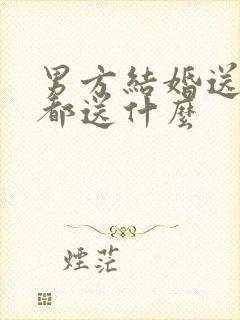 男方結婚送
都送什麼
煙茫